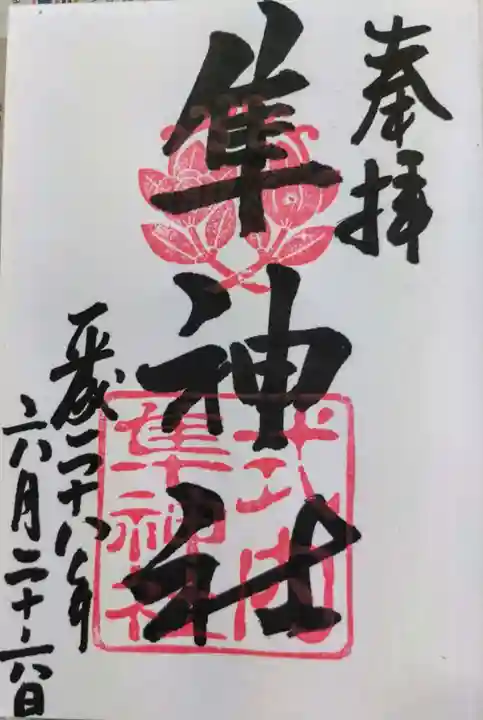 奉拝
隼神社
平成二十八年
六月二十六日